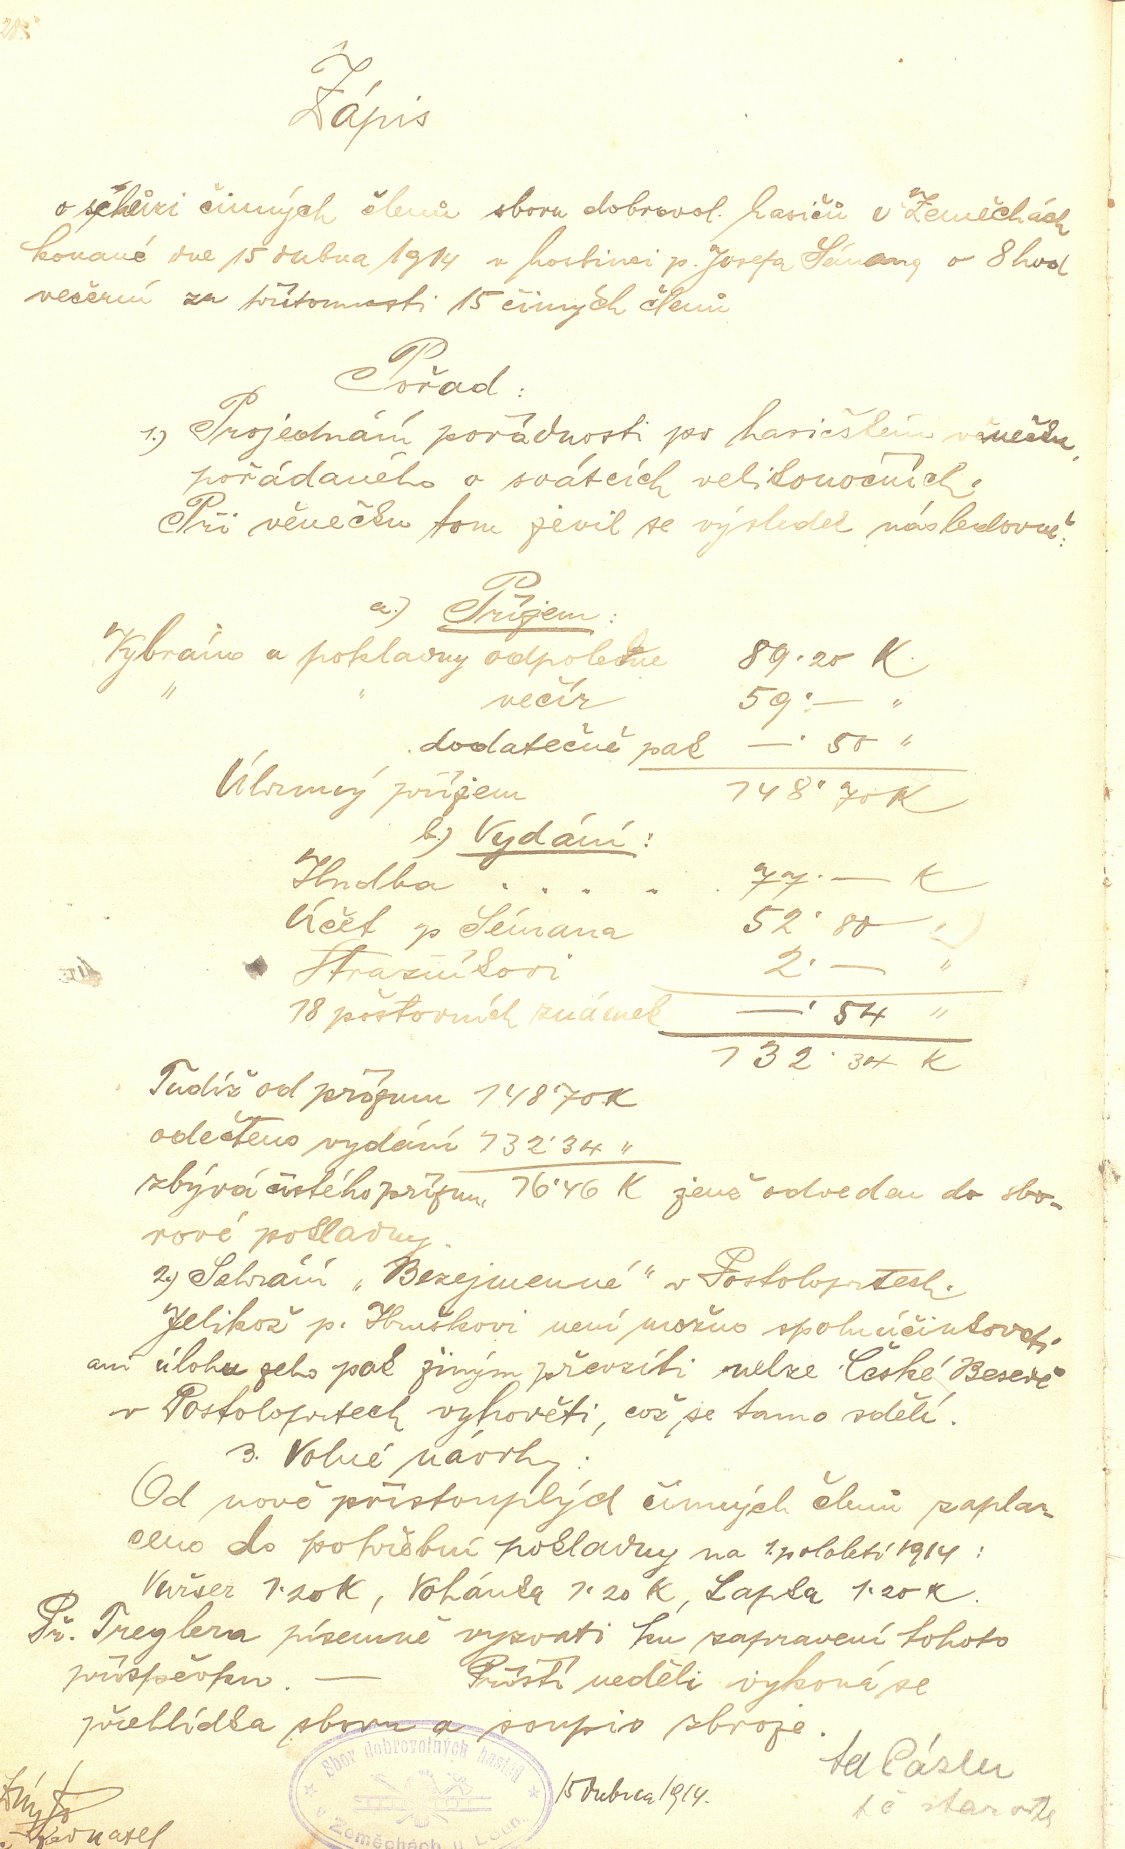 Zápis
o schůzi činných členů sboru dobrovol. hasičů v Zeměchách
konané dne 15 dubna 1914 v hostinci p. Josefa Sémana o 8 hod
večerní za přítomnosti 15 činných členů
Pořad:
1.) Projednání pořádnosti po hasičském věnečku,
pořádaného o svátcích velikonočních.
Při věnečku tom jevil se výsledek následovně:
a.) Příjem:
Vybráno u pokladny odpoledne 89·20 K.
" " večír 59·— "
dodatečně pak —·50 "
Úhrnný příjem 148·70 K
b.) Vydání:
Hudba . . . . . 77·— K
Účet p Sémana 52·80 "
Strážníkovi 2·— "
18 poštovních známek —·54 "
132·34 K
Tudíž od příjmu 148·70 K
odečteno vydání 132·34 "
zbývá čistého příjmu 16·46 K jenž odveden do sbo-
rové pokladny.
2.) Sehrání „Bezejmenné" v Postoloprtech.
Jelikož p. Hruškovi není možno spoluúčinkovati
ani úlohu jeho pak jiným převzíti nelze České Besedě
v Postoloprtech vyhověti, což se tamo sdělí.
3. Volné návrhy:
Od nově přistouplých činných členů zapla-
ceno do pohřební pokladny na 1. pololetí 1914:
Vuršer 1·20 K, Vohánka 1·20 K, Lapka 1·20 K.
Př. Treglera písemně vyzvati ku zapravení tohoto
příspěvku. — Příští neděli vykoná se
přehlídka sboru a soupis zbroje.
Sbor dobrovolných hasičů
v Zeměchách u Loun.
15 dubna 1914.
t č starosta
jednatel